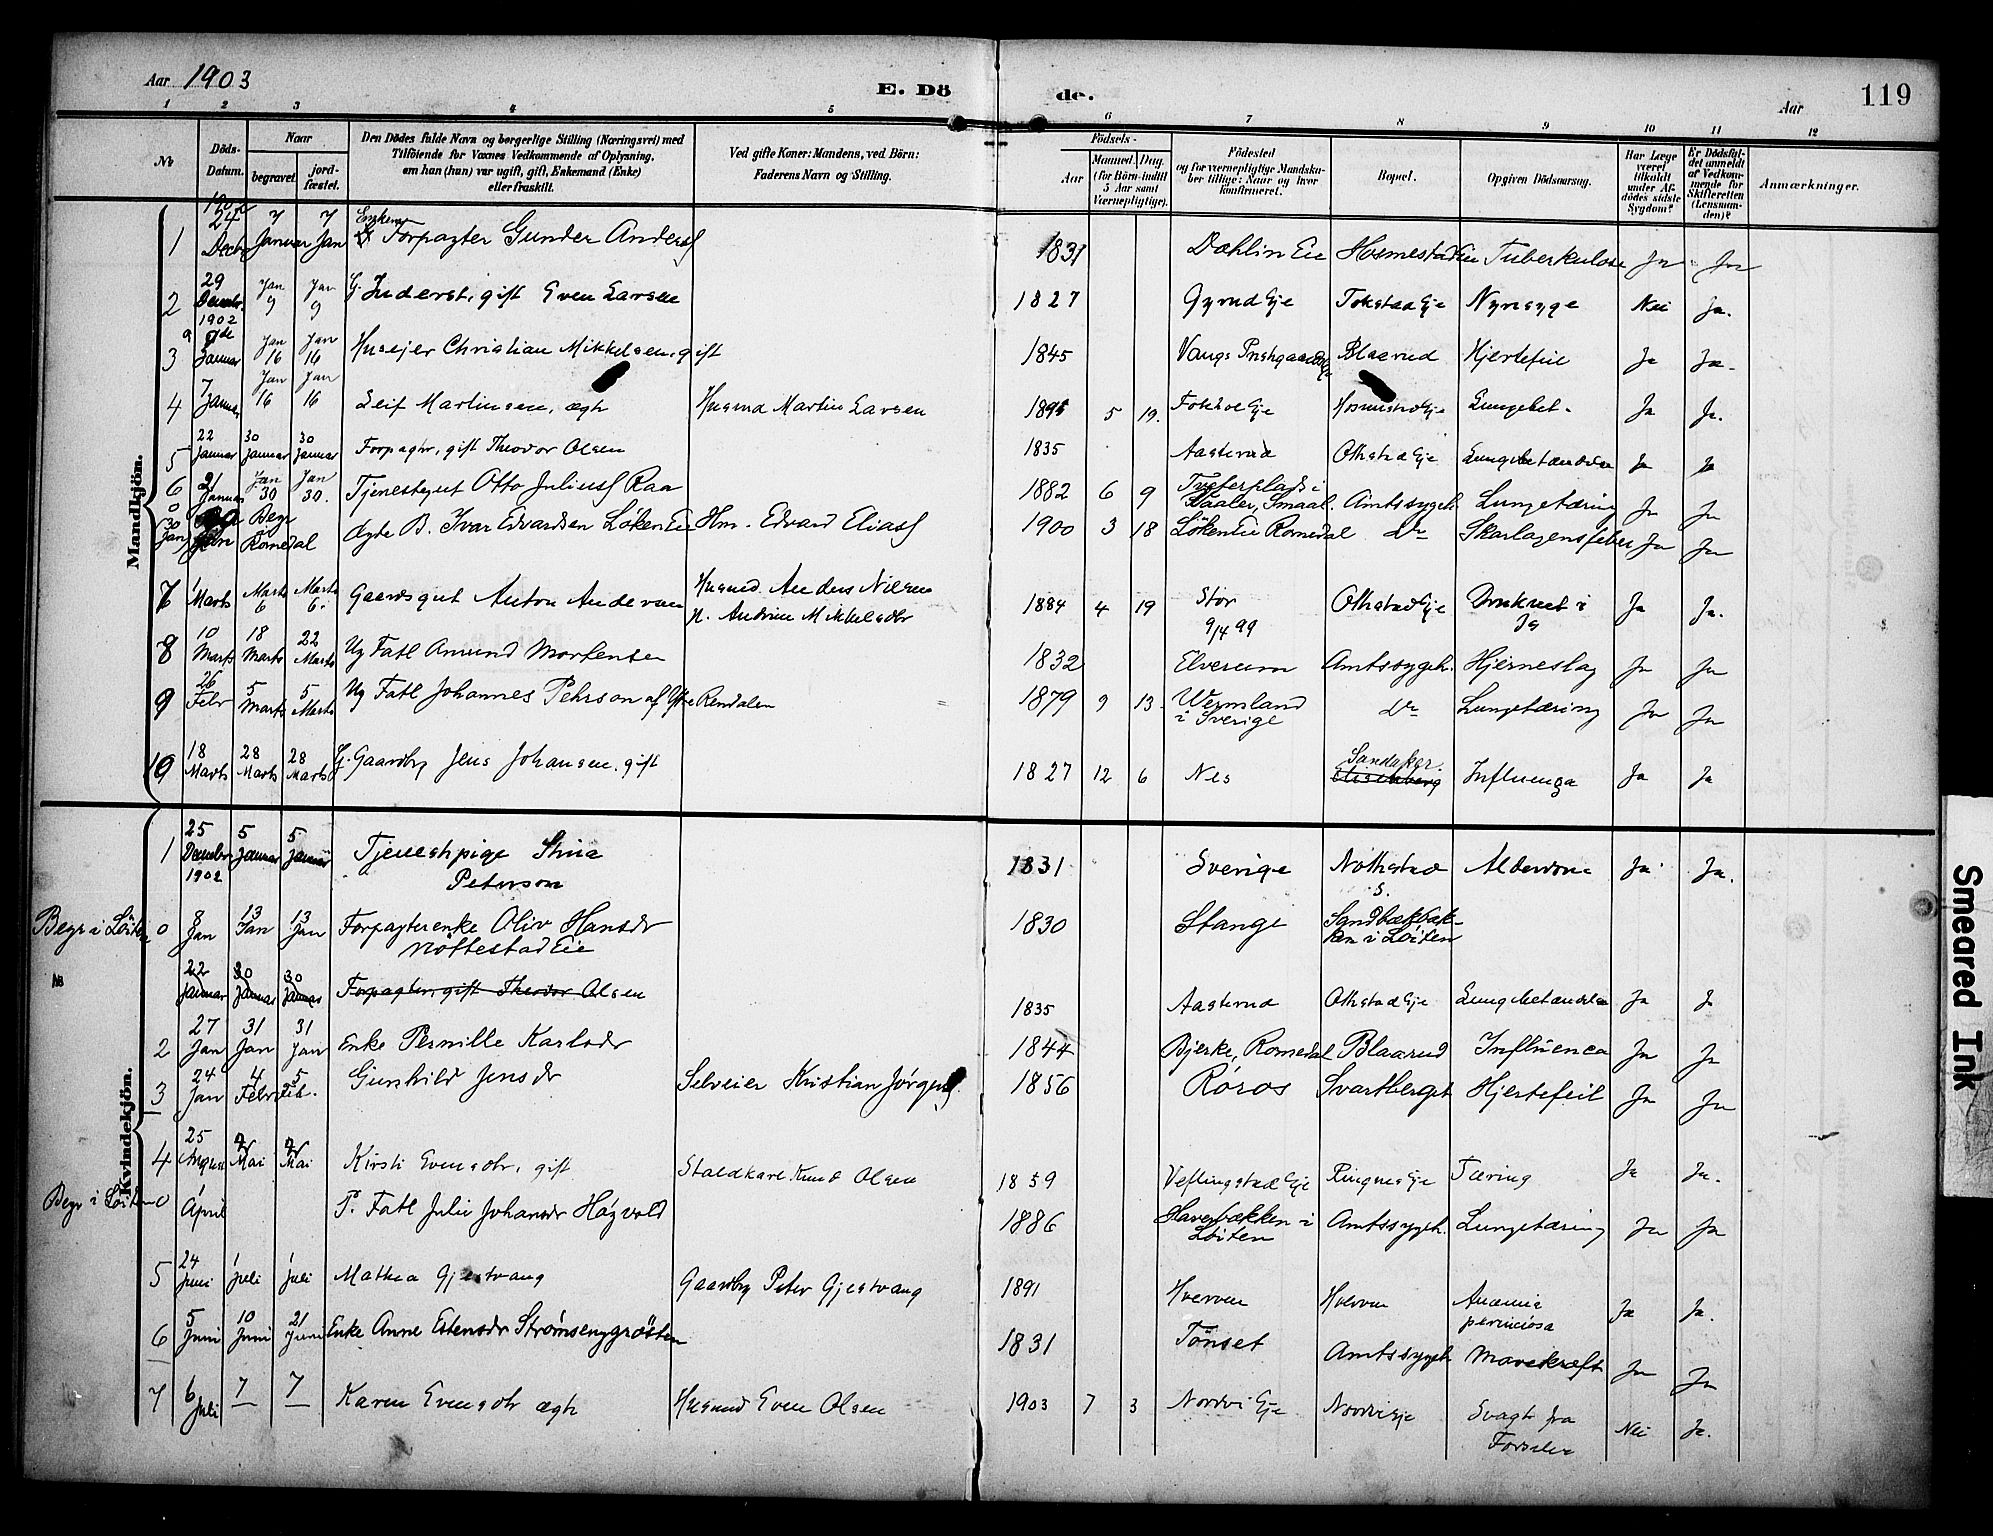 Aar 1903 E. Dö de. Aar 119
1 2 3 4 5 6 7 8 9 10 11 12
No Döds-Datum. Naar begravet. jord-fæstet. Den Dödes fulde Navn og borgerlige Stilling (Næringsvei) med Tilföiende for Voxnes Vedkommende af Oplysning, om han (hun) var ugift, gift, Enkemand (Enke) eller fraskilt. Ved gifte Koner: Mandens, ved Börn: Faderens Navn og Stilling. Födsels- Aar Maaned. Dag. (for Börn indtil 5 Aar samt Værnepligtige). Födested og for værnepligtige Mandskaber tillige: Naar og hvor konfirmeret. Bopæl. Opgiven Dödsaarsag. Har Læge været tilkaldt under Afdödes sidste Sygdom? Er Dödsfaldet anmeldt af Vedkommende for Skifteretten (Lensmanden)? Anmærkninger.
Mandkjön.
1 1902 24 Decbr 7 Januar 7 Jan Enkem Forpagter Gunder Anders 1831 Dæhlin Eie Hosmestad Eie Tuberkulose Ja Ja
2 29 Decembr. 1902 Jan 9 Jan 9 G. Inderst, gift Even Larsen 1827 Gyrud Eje Tokstad Eje Nyresyge Nei Ja.
3 9de Januar Jan 16 Jan 16 Husejer Christian Mikkelsen, gift 1845 Vangs Prstgaards Eje Blaarud Hjertefeil Ja Ja.
4 7 Januar Jan 16 Jan 16 Leif Martinsen, ægte Husmd Martin Larsen 1895 5 19. Eje Hosmestad Eje Lungebet. Ja Ja.
5 22 Januar 30 Januar 30 Januar Forpagter, gift Theodor Olsen 1835 Aasterud Othstad Eje Lungebetændelse Ja Ja
6 21 Januar Jan 30 Jan 30. Tjenestegut Otto Julius Raa 1882 6 9 Tveterplads i Vaaler, Smaal. Amtssygeh. Lungetæring Ja Ja
0 30 Jan Begr i Romedal ægte B. Ivar Edvardsen Løken Eie Hm. Edvard Elias 1900 3 18 Løken Eie Romedal do Skarlagensfeber Ja Ja
7 1 Marts Marts 6 Marts 6. Gaardsgut Anton Andersen Husmd. Anders Nilsen
p. Andrine Mikkelsdtr 1884 4 19 Stor 9/4 99 Othstad Eje Druknet i Is Ja Ja.
8 10 Marts 18 Marts 22 Marts Ug Fatl Amund Mortensen 1832 Elverum Amtssygeh. Hjerneslag Ja Ja
9 26 Febr 5 Marts 5 Marts Ug Fatl Johannes Pehrson af Ytre Rendalen 1879 9 13. Wermland i Sverige do Lungetæring Ja Ja
10 18 Marts 28 Marts 28 Marts G. Gaardbr Jens Johansen, gift 1827 12 6 Nes Sandaker. Influenza Ja Ja
Kvindekjön.
1 25 Decembr 1902 5 Januar 5 Januar Tjenestpige Stina Peterson 1831 Sverige Nøttestad Alderdom Ja Ja.
Begr i Löiten 0 8 Jan 13 Jan 13 Jan Forpagterenke Oliv Hansdr Nöttestad Eie 1830 Stange Sandbækbakken i Löiten
22 Januar 30 Januar 30 Januar Forpagter, gift Theodor Olsen 1835 Aasterud Othstad Eje Lungebetændelse Ja J
2 27 Jan 31 Jan 31 Jan Enke Pernille Karlsdr 1844 Bjerke, Romedal Blaarud Influenca Ja Ja
3 24 Jan 4 Febr 5 Feb. Gunhild Jensdr Selveier Kristian Jørgens. 1856 Røros Svartberget Hjertefeil Ja Ja
4 25 Mai Mai Kirsti Evensdtr, gift Staldkarl Knud Olsen 1859 Veflingstad Eje Ringnes Eje Tæring Ja Ja.
Begr i Löiten 0 1 April P. Fatl Julie Johansdr Høgvold 1886 Haverbækken i Löiten Amtssygeh. Lungetæring Ja Ja
5 24 Juni 1 Juli 1 Juli Mathea Gjestvang Gaardbr Peter Gjestvang 1891 Hverven Hverven Anæmia perniciosa Ja Ja.
6 5 Juni 10 Juni 21 Juni Enke Anne Estensdr Strömsenggrösten 1831 Tönset Amtssygeh Mavekræft Ja Ja
7 6 Juli 7 – 7 – Karen Evensdtr ægte Husmd Even Olsen 1903 7 3 Nordvi Eje Nordvi Eje Svagt fra Forsalen Nei Ja.
Smeared Ink